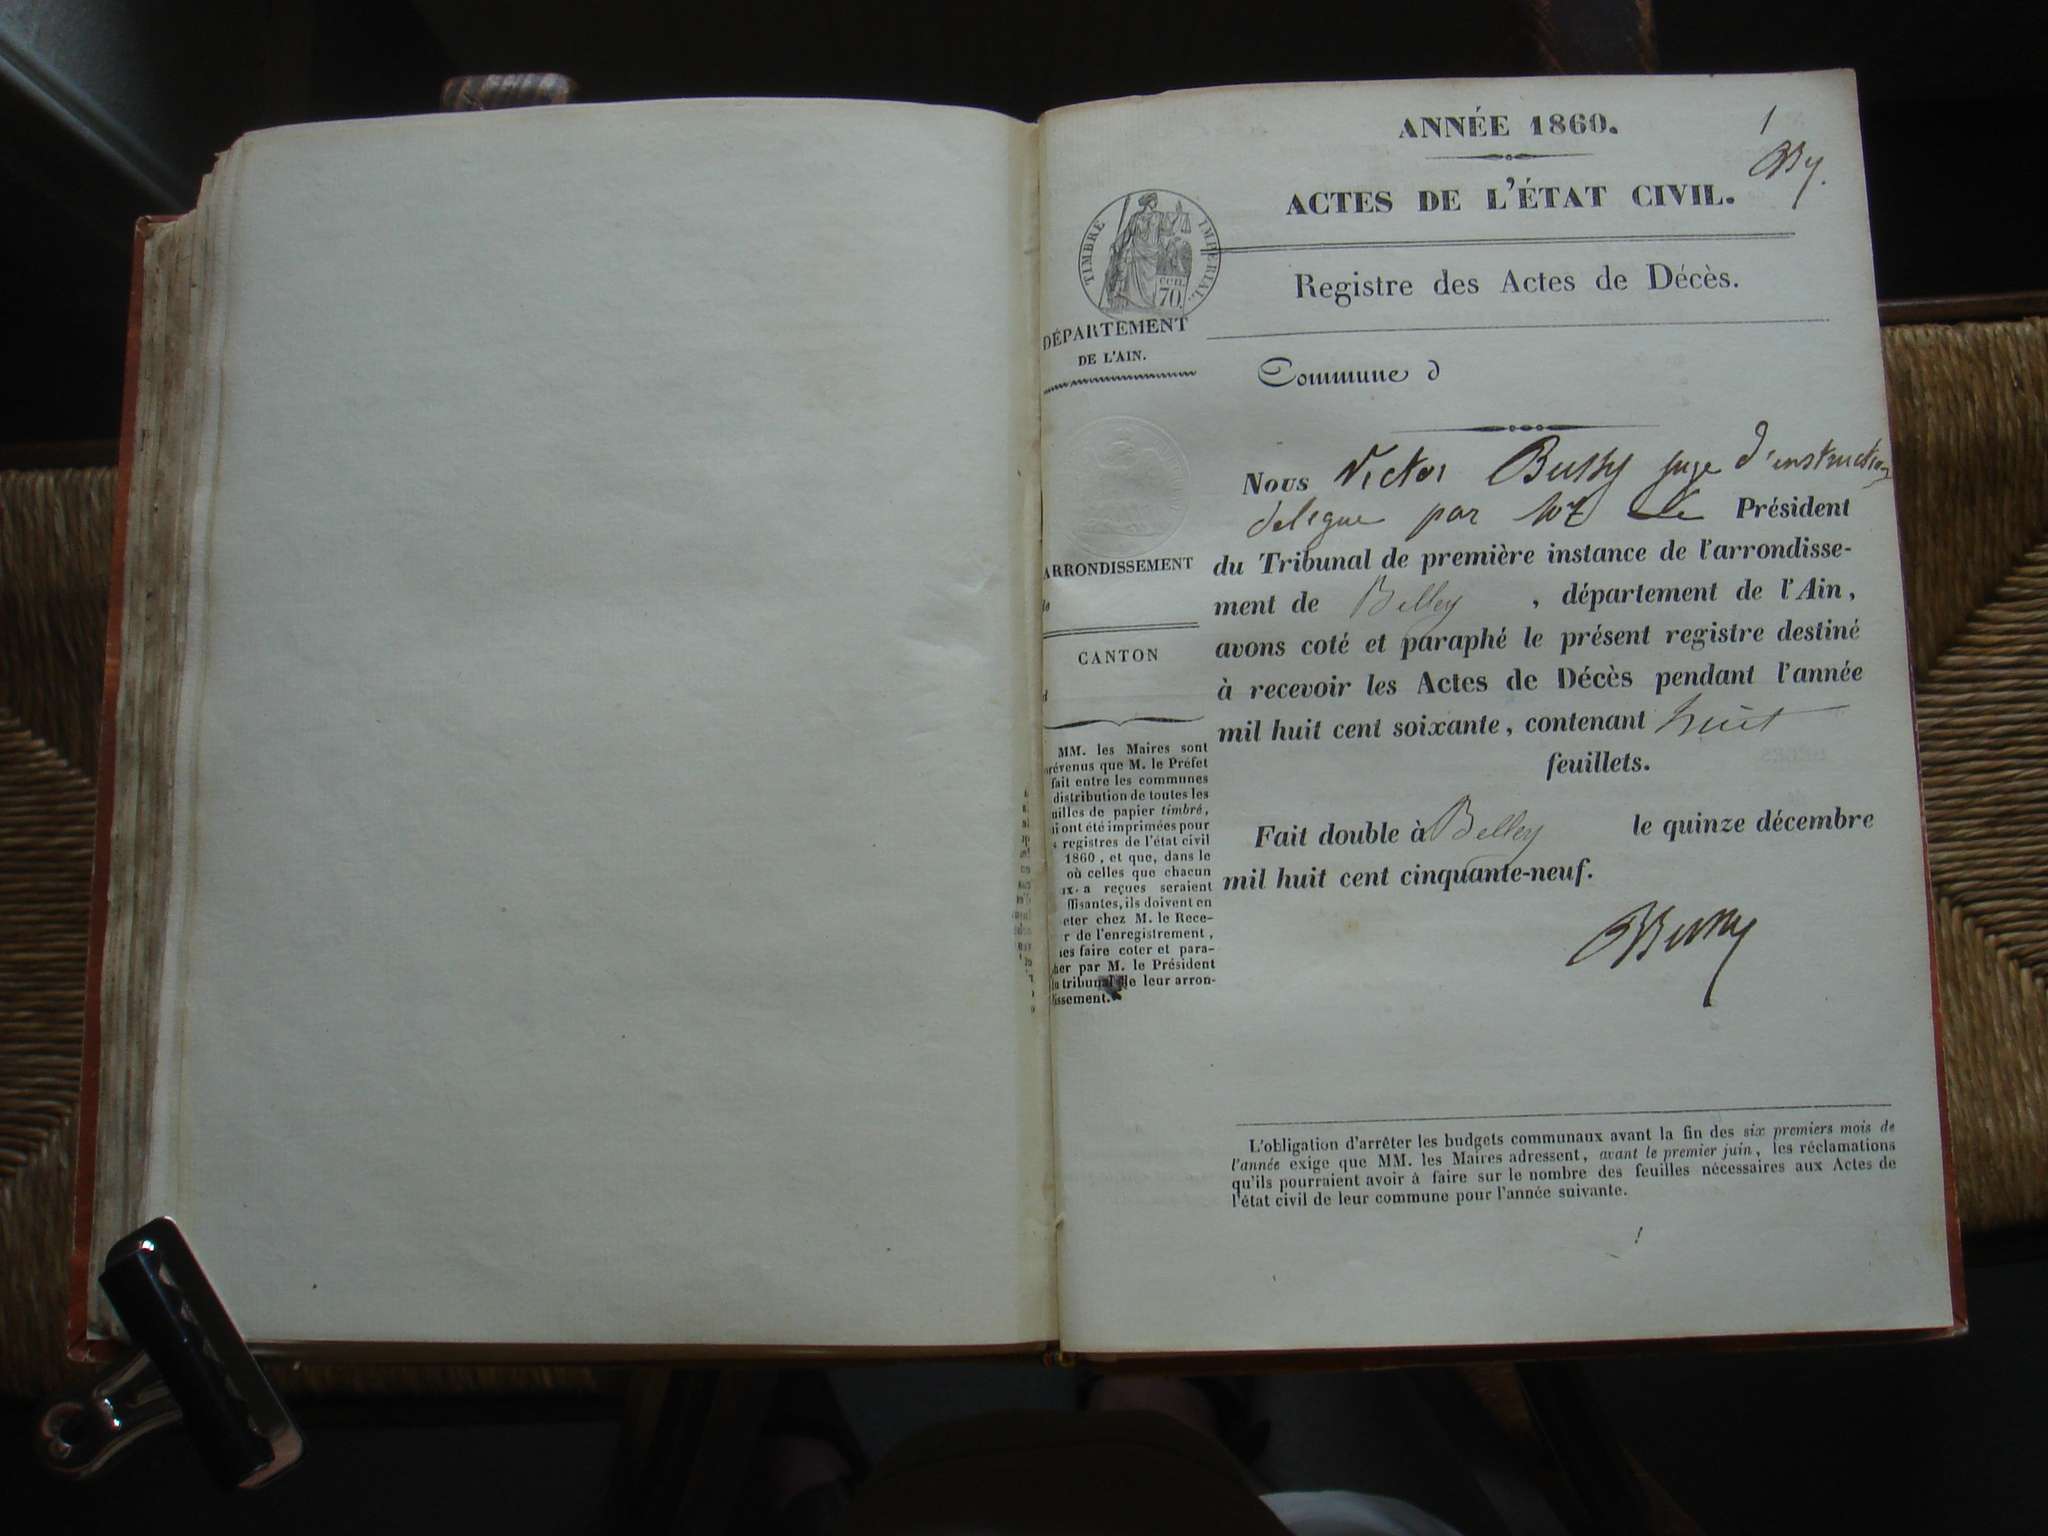 ANNÉE 1860.
1
ACTES DE L'ÉTAT CIVIL.
TIMBRE IMPÉRIAL.
CEN.
70
Registre des Actes de Décès.
DÉPARTEMENT
DE L'AIN.
Commune d
Nous Victor Bussy juge d'instruction
delegue par Mr Le Président
du Tribunal de première instance de l'arrondisse-
ment de Belley, département de l'Ain,
avons coté et paraphé le présent registre destiné
à recevoir les Actes de Décès pendant l'année
mil huit cent soixante, contenant huit
feuillets.
Fait double à Belley le quinze décembre
mil huit cent cinquante-neuf.
Bussy
ARRONDISSEMENT
CANTON
MM. les Maires sont
prévenus que M. le Préfet
fait entre les communes
distribution de toutes les
uilles de papier timbré,
ui ont été imprimées pour
s registres de l'état civil
1860, et que, dans le
où celles que chacun
ux a reçues seraient
ffisantes, ils doivent en
eter chez M. le Rece-
r de l'enregistrement,
les faire coter et para-
her par M. le Président
u tribunal de leur arron-
issement.
L'obligation d'arrêter les budgets communaux avant la fin des six premiers mois de
l'année exige que MM. les Maires adressent, avant le premier juin, les réclamations
qu'ils pourraient avoir à faire sur le nombre des feuilles nécessaires aux Actes de
l'état civil de leur commune pour l'année suivante.